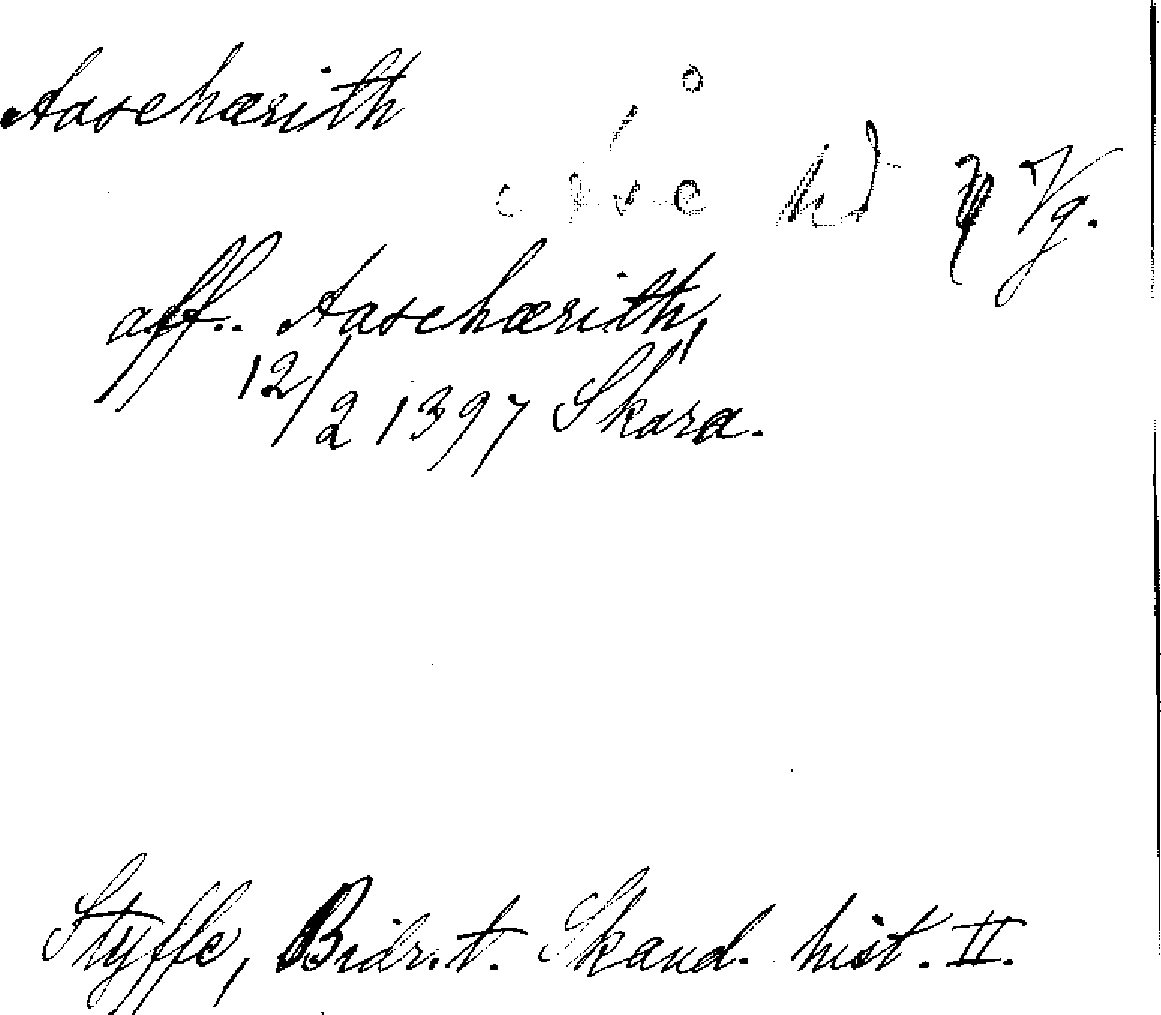 Aaschærith
Åse hd Vg.
aff.. Aaschærith,
12/2 1397 Skara.
Styffe, Bidr. t. Skand. hist. II.